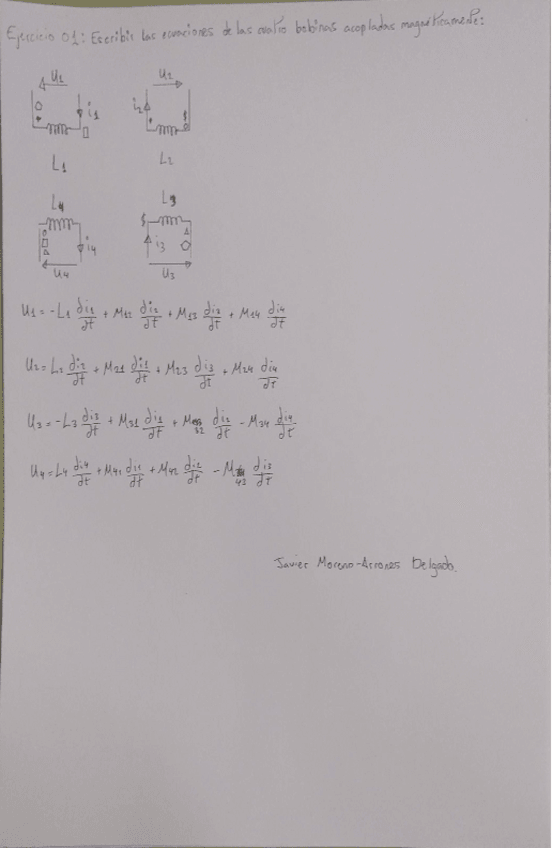 Ejercicio 01: Escribir las ecuaciones de las cuatro bobinas acopladas magnéticamente:
U1 U2
i1 i2
L1 L2
L4 L3
i4 i3
U4 U3
U1 = -L1 di1/dt + M12 di2/dt + M13 di3/dt + M14 di4/dt
U2 = L2 di2/dt + M21 di1/dt + M23 di3/dt + M24 di4/dt
U3 = -L3 di3/dt + M31 di1/dt + M32 di2/dt - M34 di4/dt
U4 = L4 di4/dt + M41 di1/dt + M42 di2/dt - M43 di3/dt
Javier Moreno-Arrones Delgado.